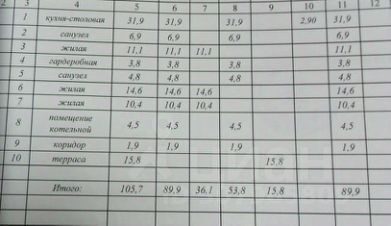 2 3 4 5 6 7 8 9 10 11 12
1 кухня-столовая 31,9 31,9 31,9 2,90 31,9
2 санузел 6,9 6,9 6,9 6,9
3 жилая 11,1 11,1 11,1 11,1
4 гардеробная 3,8 3,8 3,8 3,8
5 санузел 4,8 4,8 4,8 4,8
6 жилая 14,6 14,6 14,6 14,6
7 жилая 10,4 10,4 10,4 10,4
8 помещение
котельной 4,5 4,5 4,5 4,5
9 коридор 1,9 1,9 1,9 1,9
10 терраса 15,8 15,8
Итого: 105,7 89,9 36,1 53,8 15,8 89,9